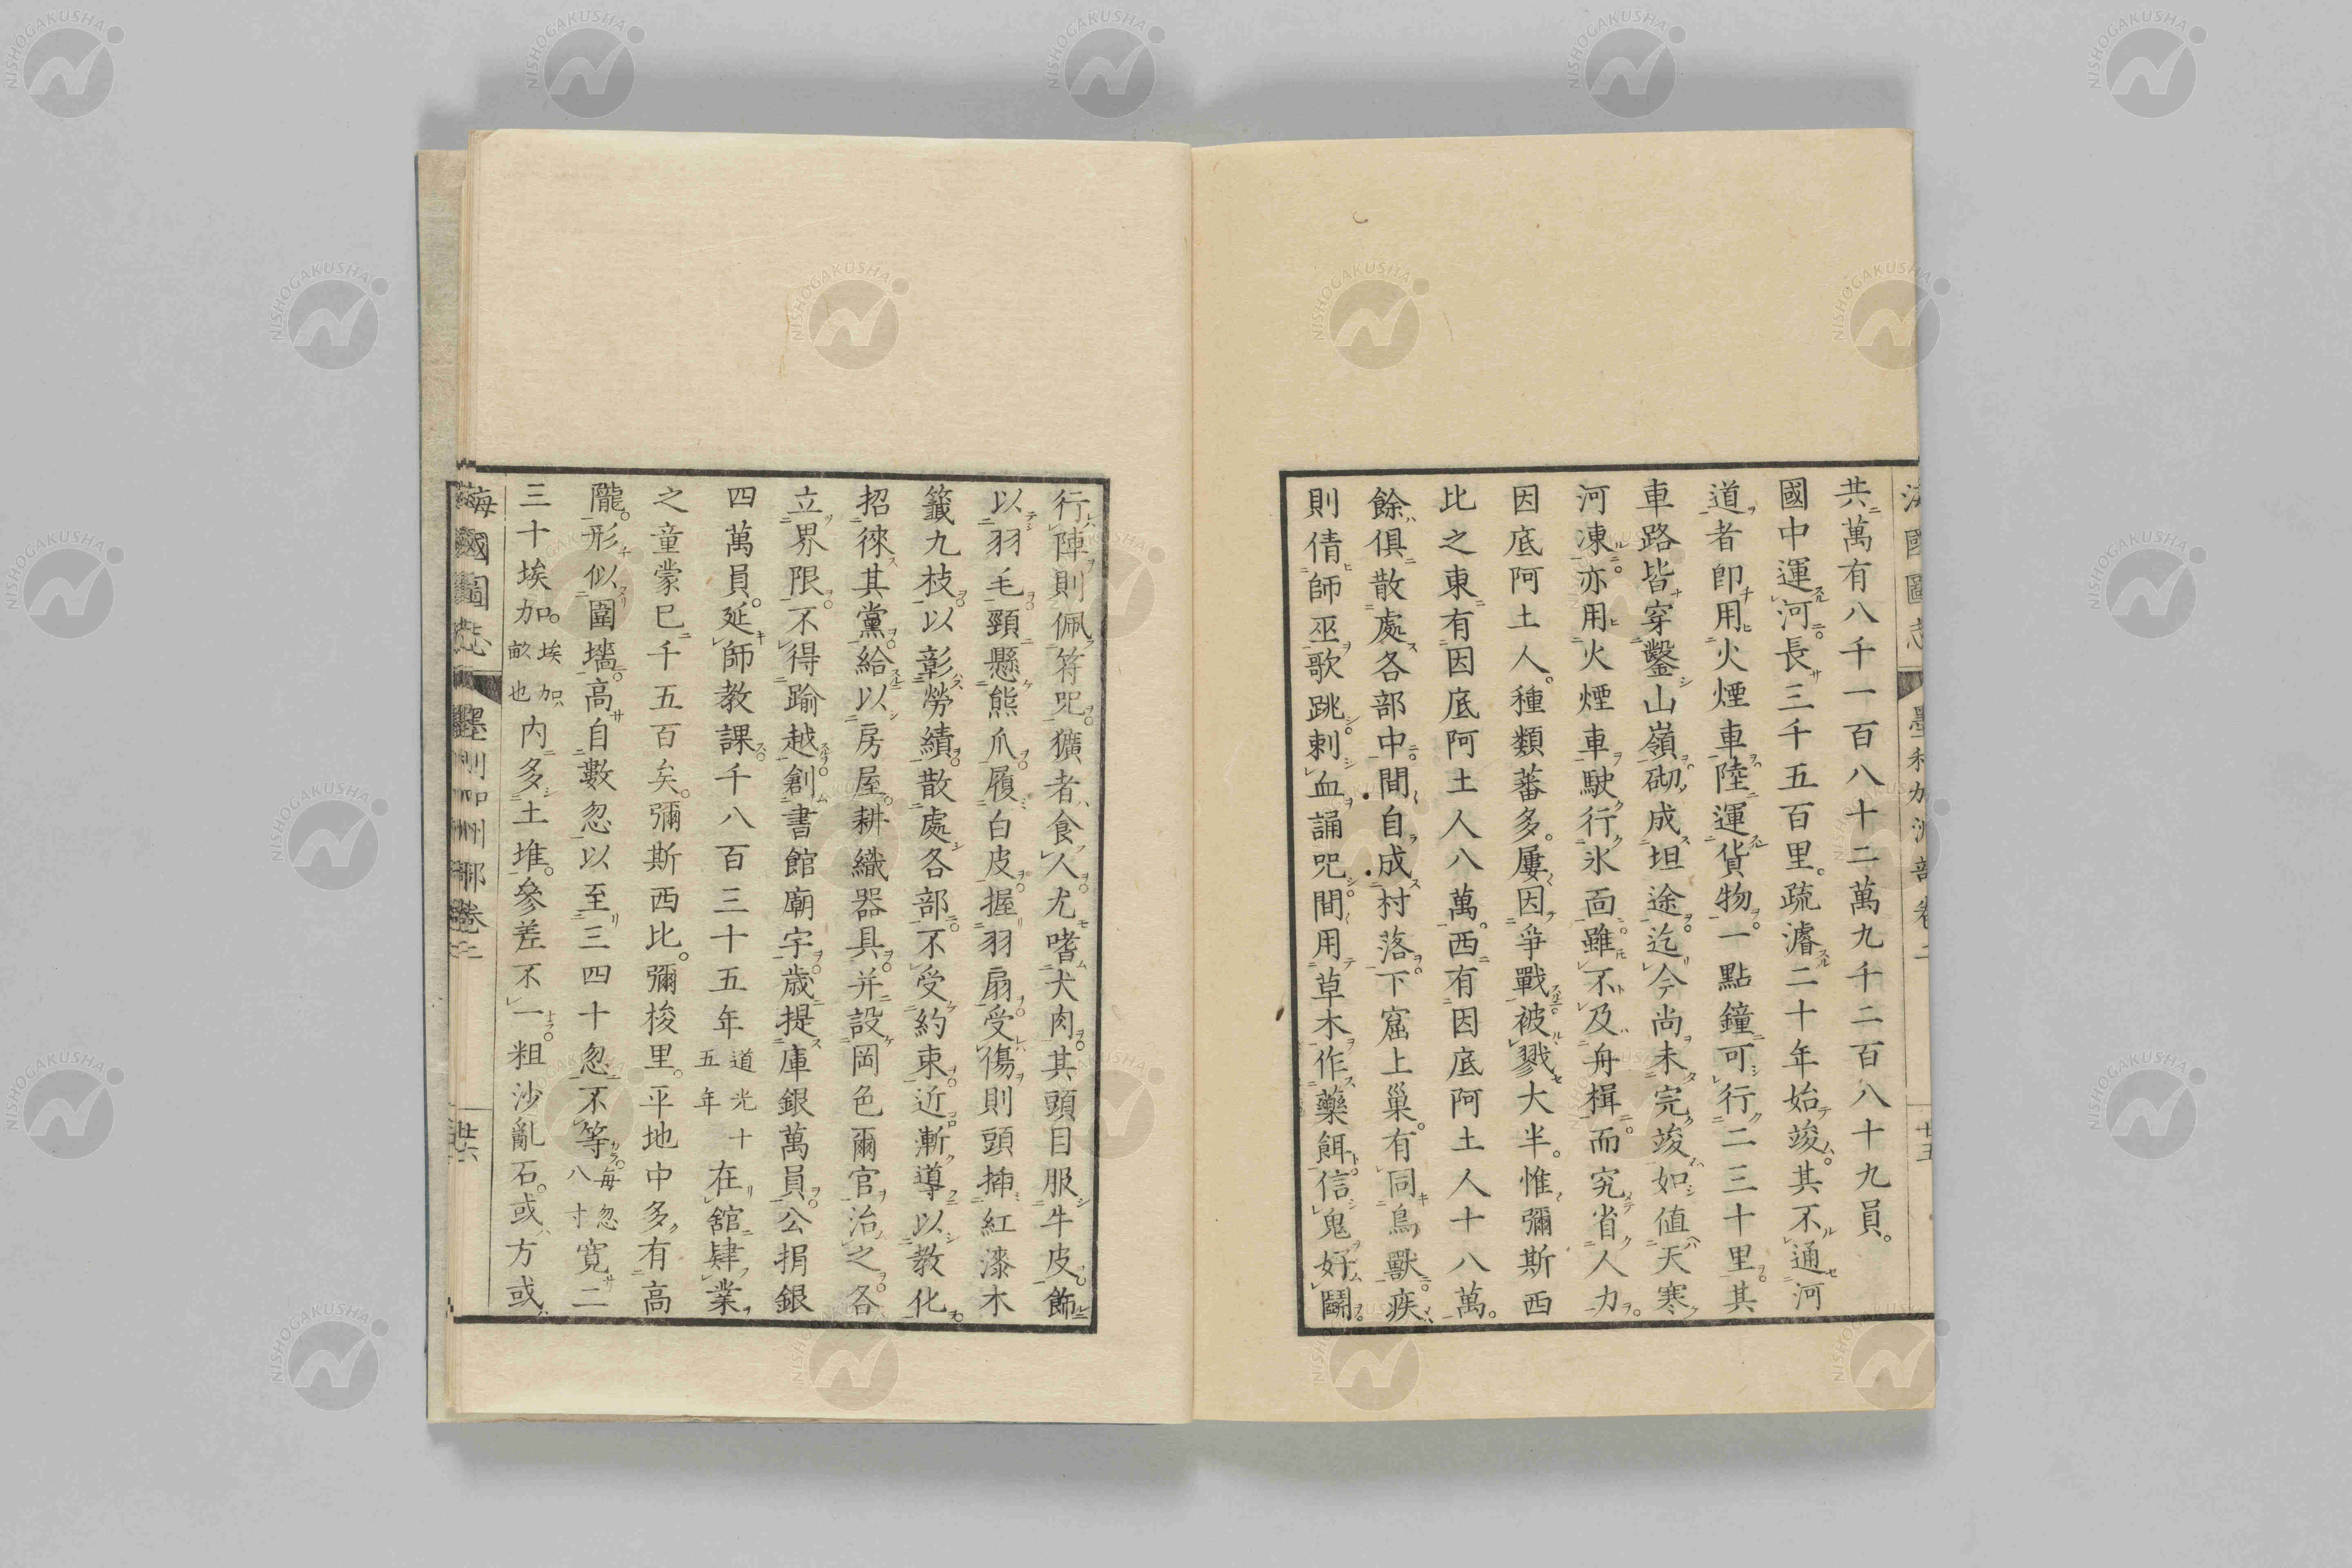 共萬有八千一百八十二萬九千二百八十九員。
國中運河。長三千五百里。疏濬二十年始竣。其不通河
道者卽用火煙車陸運貨物。一點鐘可行二三十里。其
車路皆穿鑿山嶺。砌成坦途。迄今尚未完竣。如値天寒
河凍。亦用火煙車駛行氷面。雖不及舟楫。而究省人力。
因底阿土人。種類蕃多。屢因爭戰。被戮大半。惟彌斯西
比之東有因底阿土人八萬。西有因底阿土人十八萬。
餘俱散處各部中。間自成村落。下窟上巢。有同鳥獸。疾
則倩師巫歌跳。刺血誦咒。間用草木作藥餌。信鬼好鬪。
行陣則佩符咒。獷者食人。尤嗜犬肉。其頭目服牛皮。飾
以羽毛。頸懸熊爪。履白皮。握羽扇。受傷則頭揷紅漆木
籤九枝。以彰勞績。散處各部。不受約束。近漸導以教化。
招徠其黨。給以房屋。耕織器具。并設岡色爾官治之。各
立界限。不得踰越。創書館廟宇。歲提庫銀萬員。公捐銀
四萬員。延師教課。千八百三十五年道光十五年在舘肄業
之童蒙巳千五百矣。彌斯西比。彌梭里。平地中多有高
隴。形似圍墻。高自數忽以至三四十忽不等。每忽八寸寬二
三十埃加。埃加畝也内多土堆。參差不一。粗沙亂石。或方或
海國圖志
墨利加洲部卷二
廿六